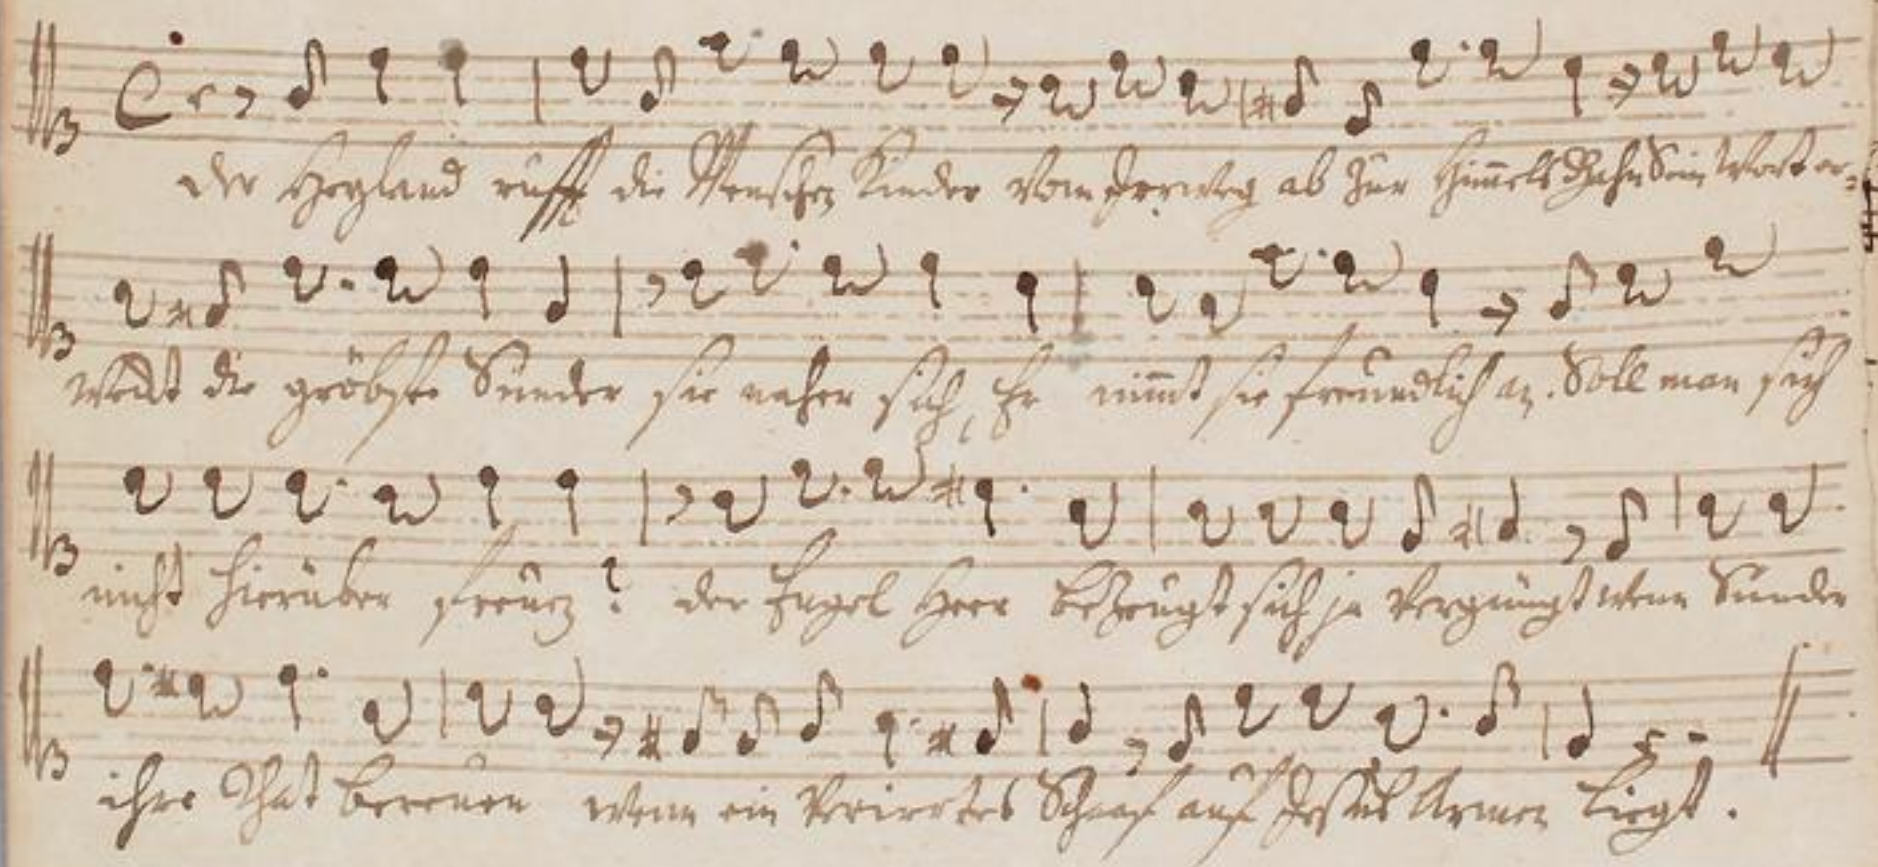 der Heyland rufft die Menschen Kinder vom Irrweg ab zur Himmels Bahn Sein Wort er-
weckt die gröbste Sünder sie naher sich, Er nimmt sie freundlich an. Soll man sich
nicht hierüber freuen? der Engel Heer bezeugt sich ja vergnügt wenn Sünder
ihre That bereuen wenn ein verirrtes Schaaf auf Jesus Armen liegt.